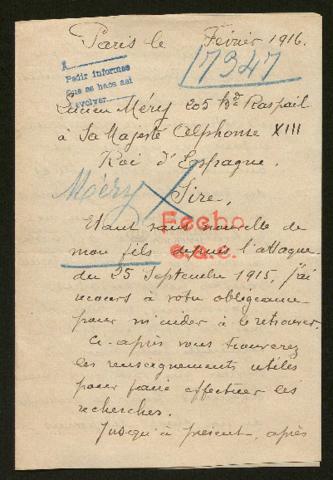 Paris le Février 1916.
17347
Pedir informes
que se hace así
devolver
Lucien Méry 205 Bd Raspail
à Sa Majesté Alphonse XIII
Roi d'Espagne.
Méry
Sire,
Fecho
Etant sans nouvelle de
mon fils depuis l'attaque
du 25 Septembre 1915, j'ai
recours à votre obligeance
pour m'aider à le retrouver.
Ci-après vous trouverez
les renseignements utiles
pour faire effectuer les
recherches.
Jusqu'à présent, après